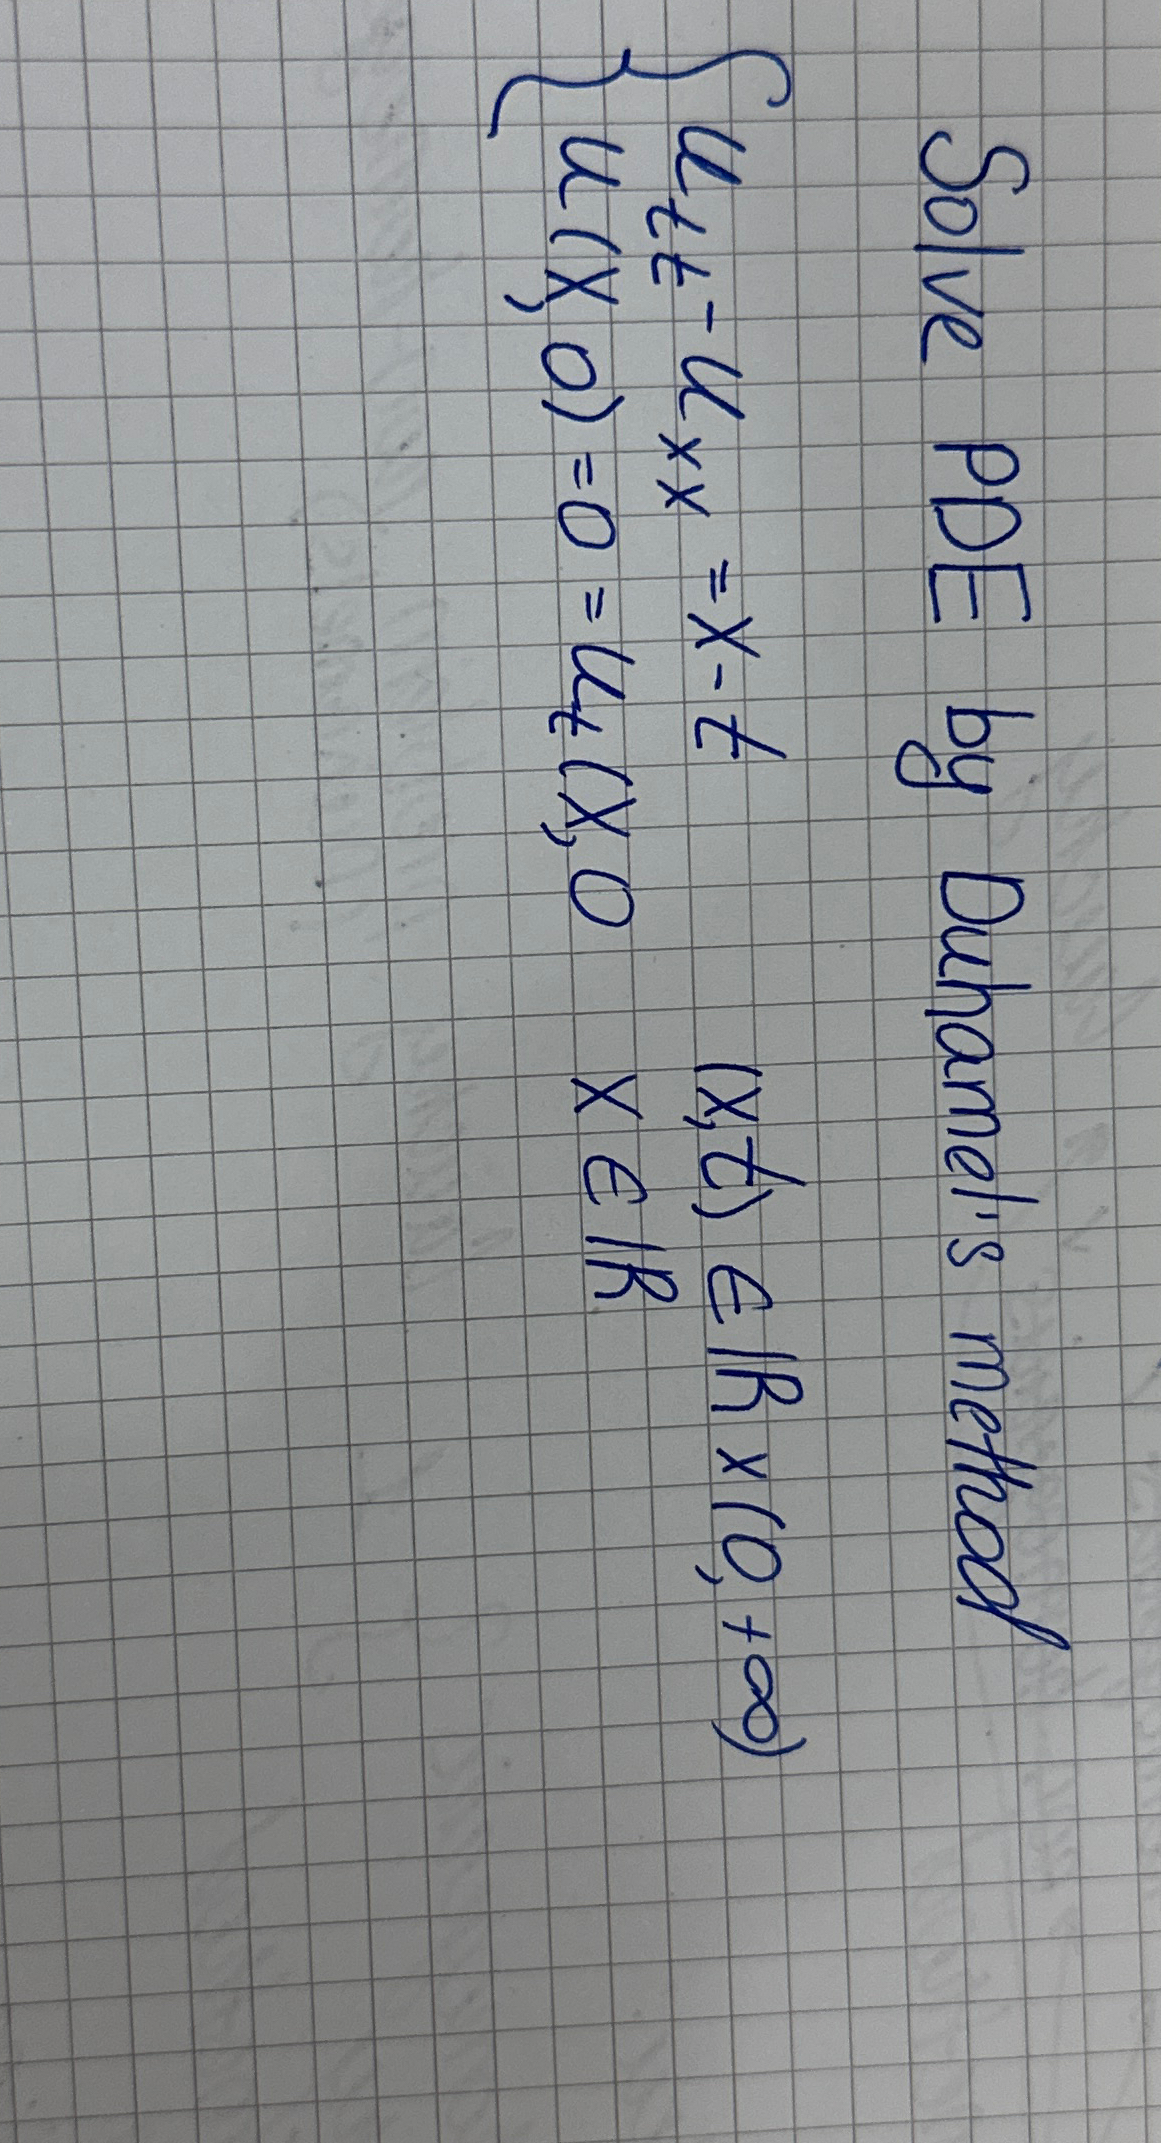 Solve PDE by Duhamel's method
{ u_tt - u_xx = x - t (x,t) ∈ ℝ × (0, +∞)
u(x,0) = 0 = u_t(x,0 x ∈ ℝ